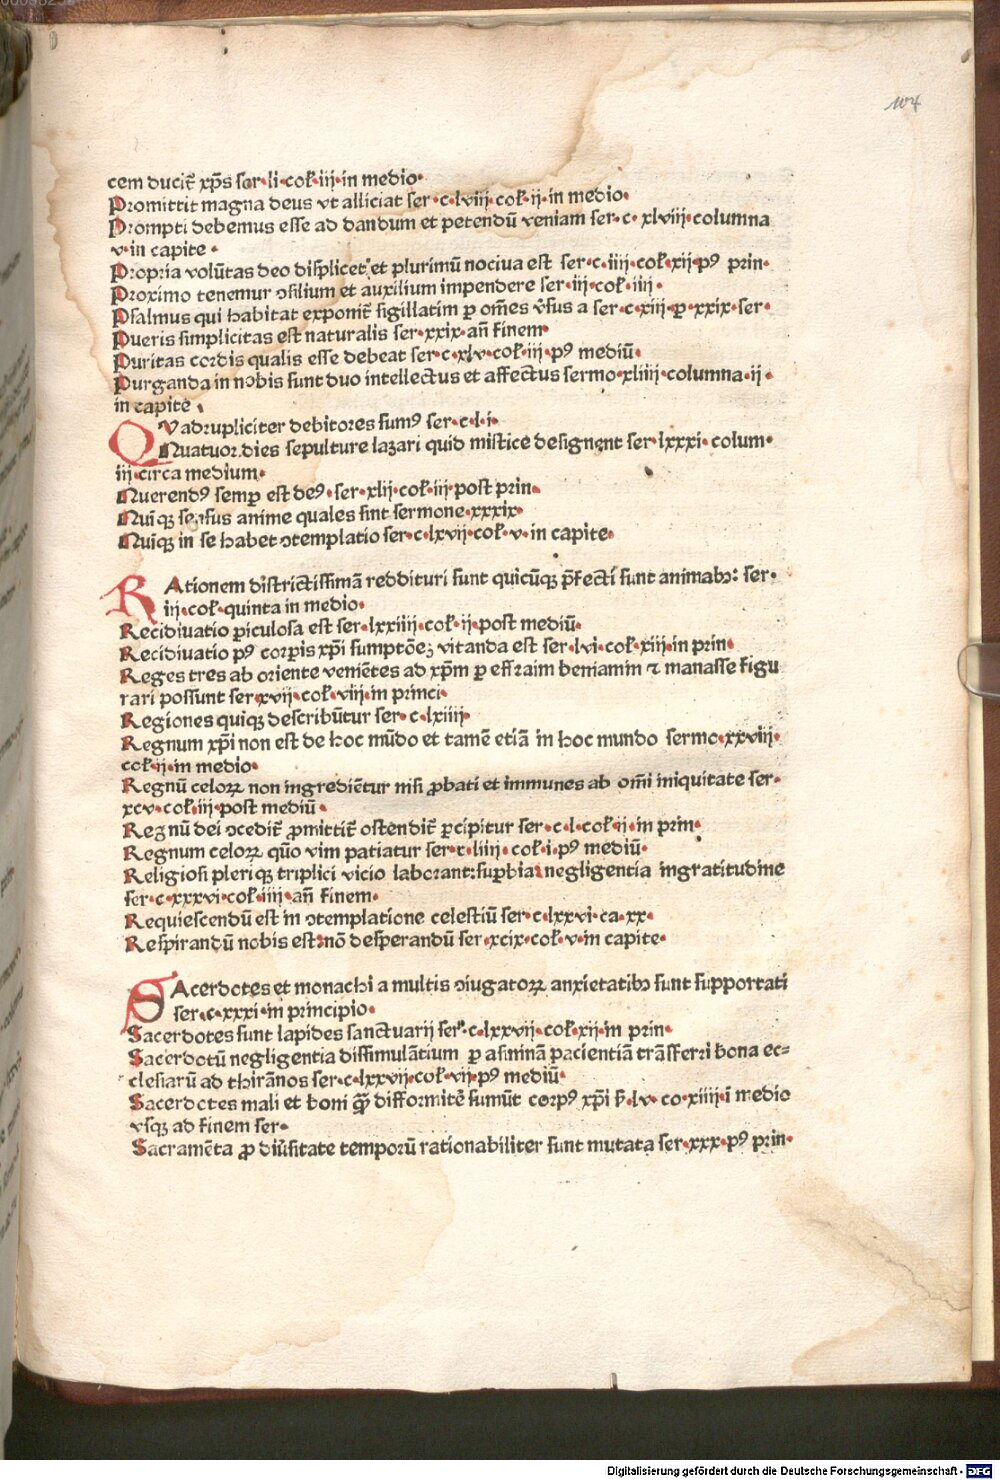 104
cem ducit᷑ xp̄s ser·li·col̕·iij·in medio·
Promittit magna deus vt alliciat ser·c·lviij·col̕·ij·in medio·
Prompti debemus esse ad dandum et petendū veniam ser·c·xlviij·columna
v·in capite·
Propria volūtas deo displicet et plurimū nociua est ser·c·iiij·col̕·xij·pꝰ prin·
Proximo tenemur ꝯsilium et auxilium impendere ser·iij·col̕·iiij·
Psalmus qui habitat exponit᷑ sigillatim ꝑ om̄es v̄sus a ser·c·xiij·ꝑ·xxix·ser·
Pueris simplicitas est naturalis ser·xxix·an̄ finem·
Puritas cordis qualis esse debeat ser·c·xlv·col̕·iij·pꝰ mediū·
Purganda in nobis sunt duo intellectus et affectus sermo·xliiij·columna·ij·
in capite·
QVadrupliciter debitores sumꝰ ser·c·l·i·
Quatuor dies sepulture lazari quid mistice designent ser·lxxxi·colum·
iij·circa medium·
Querendꝰ semꝑ est deꝰ·ser·xlij·col̕·iij·post prin·
Quīqꝫ sensus anime quales sint sermone·xxxix·
Quīqꝫ in se habet ꝯtemplatio ser·c·lxvij·col̕·v·in capite·
RAtionem districtissimā reddituri sunt quicūqꝫ p̄fecti sunt animabꝫ: ser·
iij·col̕·quinta in medio·
Recidiuatio ꝑiculosa est ser·lxxiiij·col̕·ij·post mediū·
Recidiuatio pꝰ corꝑis xp̄i sumptōeꝫ vitanda est ser·lvi·col̕·xiij·in prin·
Reges tres ab oriente veniētes ad xp̄m ꝑ effraim beniamin ⁊ manasse figu
rari possunt ser·xvij·col̕·viij·in princi·
Regiones quīqꝫ describūtur ser·c·lxiiij·
Regnum xp̄i non est de hoc mūdo et tamē etiā in hoc mundo sermo·xxviij·
col̕·ij·in medio·
Regnū celoꝝ non ingrediētur nisi ꝓbati et immunes ab om̄i iniquitate ser·
xcv·col̕·iij·post mediū·
Regnū dei ꝯcedit᷑ ꝓmittit᷑ ostendit᷑ ꝑcipitur ser·c·l·col̕·ij·in prin·
Regnum celoꝝ quō vim patiatur ser·c·liiij·col̕·i·pꝰ mediū·
Religiosi pleriqꝫ triplici vicio laborant: suꝑbia negligentia ingratitudine
ser·c·xxxvi·col̕·iiij·an̄ finem·
Requiescendū est in ꝯtemplatione celestiū ser·c·lxxvi·ca·xx·
Respirandū nobis est: nō desperandū ser·xcix·col̕·v·in capite·
SAcerdotes et monachi a multis ꝯiugatoꝝ anxietatibꝫ sunt supportati
ser·c·xxxi·in principio·
Sacerdotes sunt lapides sanctuarij ser·c·lxxvij·col̕·xij·in prin·
Sacerdotū negligentia dissimulātium ꝑ asininā pacientiā trāsferri bona ec=
clesiarū ad thirānos ser·c·lxxvij·col̕·vij·pꝰ mediū·
Sacerdotes mali et boni q̄ꝫ difformitē sumūt corpꝰ xp̄i ẜ·lv·co·xiiij·ī medio
vsqꝫ ad finem ser·
Sacramēta ꝓ diu̕sitate temporū rationabiliter sunt mutata ser·xxx·pꝰ prin·
Digitalisierung gefördert durch die Deutsche Forschungsgemeinschaft - DFG